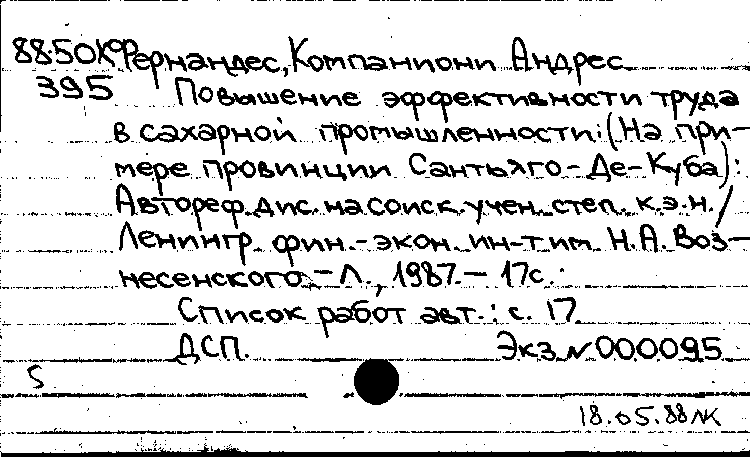 88.50ко Фернандес, Компаниони Андрес
395 Повышение эффективности труда
в сахарной промышленности: (На при-
мере провинции Сантьяго-Де-Куба):
Автореф. дис. на соиск. учен. степ. к.э.н. /
Ленингр. фин.-экон. ин-т им. Н.А. Воз-
несенского. - Л., 1987. - 17с.
Список работ авт.: с. 17.
ДСП. Экз. № 000095
5
18.05.88